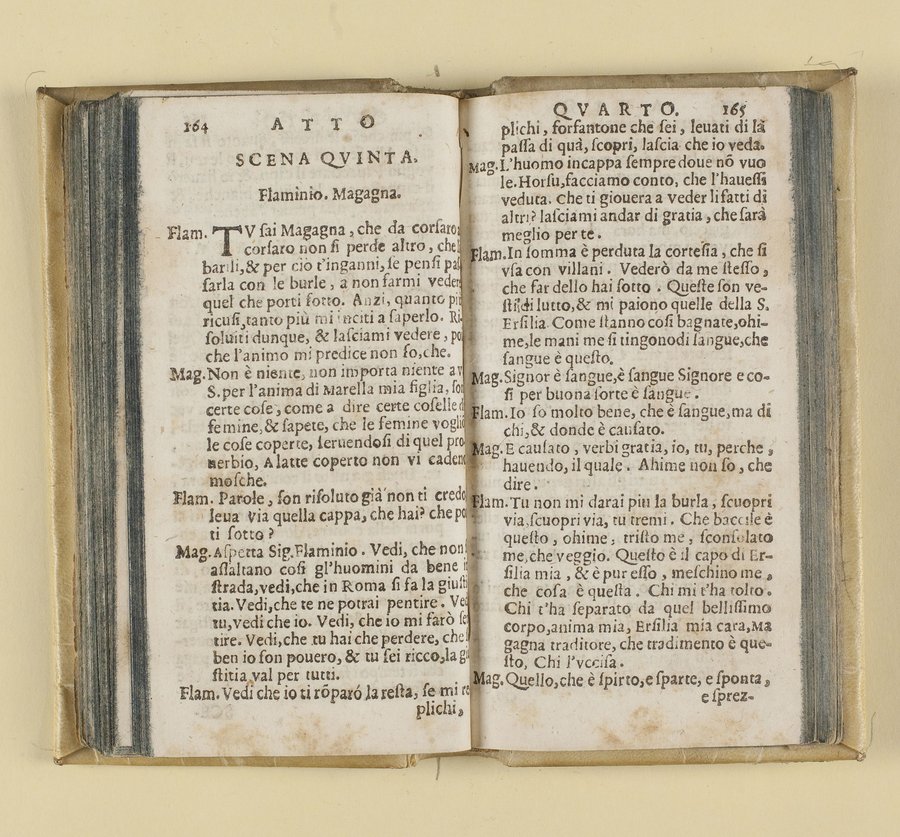 164 ATTO
SCENA QVINTA.
Flaminio. Magagna.
Flam. TV sai Magagna, che da corsaro
corsaro non si perde altro, che
barili,& per ciò t'inganni,se pensi
sarla con le burle, a non farmi veder
quel che porti sotto. Anzi, quanto
ricusi,tanto più mi inciti a saperlo. Ri-
soluiti dunque, & lasciami vedere,
che l'animo mi predice non so,che.
Mag. Non è niente, non importa niente a
S.per l'anima di Marella mia figlia,
certe cose, come a dire certe coselle
femine,& sapete, che le femine
le cose coperte, seruendosi di quel
nerbio, A latte coperto non vi
mosche.
Flam. Parole, son risoluto già non ti credo
leua via quella cappa, che hai? che
ti sotto?
Mag. Aspetta Sig.Flaminio. Vedi, che non
assaltano così gl'huomini da bene
strada,vedi,che in Roma si fa la
tia.Vedi,che te ne potrai pentire.
tu,vedi che io. Vedi, che io mi farò
tire. Vedi,che tu hai che perdere, che
ben io son pouero, & tu sei ricco,la
stitia val per tutti.
Flam. Vedi che io ti rōparó la testa, se mi re
plichi,
QVARTO. 165
plichi, forfantone che sei, leuati di là
passa di quà, scopri, lascia che io veda.
Mag. L'huomo incappa sempre doue nō vuo
le.Horsu,facciamo conto, che l'hauessi
veduta. Che ti giouera a veder li fatti di
altri? lasciami andar di gratia, che sarà
meglio per te.
Flam. In somma è perduta la cortesia, che si
vsa con villani. Vederò da me stesso,
che far dello hai sotto. Queste son ve-
sti di lutto,& mi paiono quelle della S.
Ersilia Come stanno così bagnate,ohi-
me,le mani me si tingonodi sangue,che
sangue è questo.
Mag. Signor è sangue,è sangue Signore e co-
si per buona sorte è sangue.
Flam. Io so molto bene, che è sangue,ma di
chi,& donde è causato.
Mag. E causato, verbi gratia, io, tu, perche,
hauendo, il quale. Ahime non so, che
dire.
Flam. Tu non mi darai piu la burla, scuopri
via,scuopri via, tu tremi. Che baccile è
questo, ohime, tristo me, sconsolato
me,che veggio. Questo è il capo di Er-
silia mia, & è pur esso, meschino me,
che cosa è questa. Chi mi t'ha tolto.
Chi t'ha separato da quel bellissimo
corpo,anima mia, Ersilia mia cara,Ma
gagna traditore, che tradimento è que-
sto, Chi l'vccisa.
Mag. Quello,che è spirto,e sparte, e sponta,
e sprez-